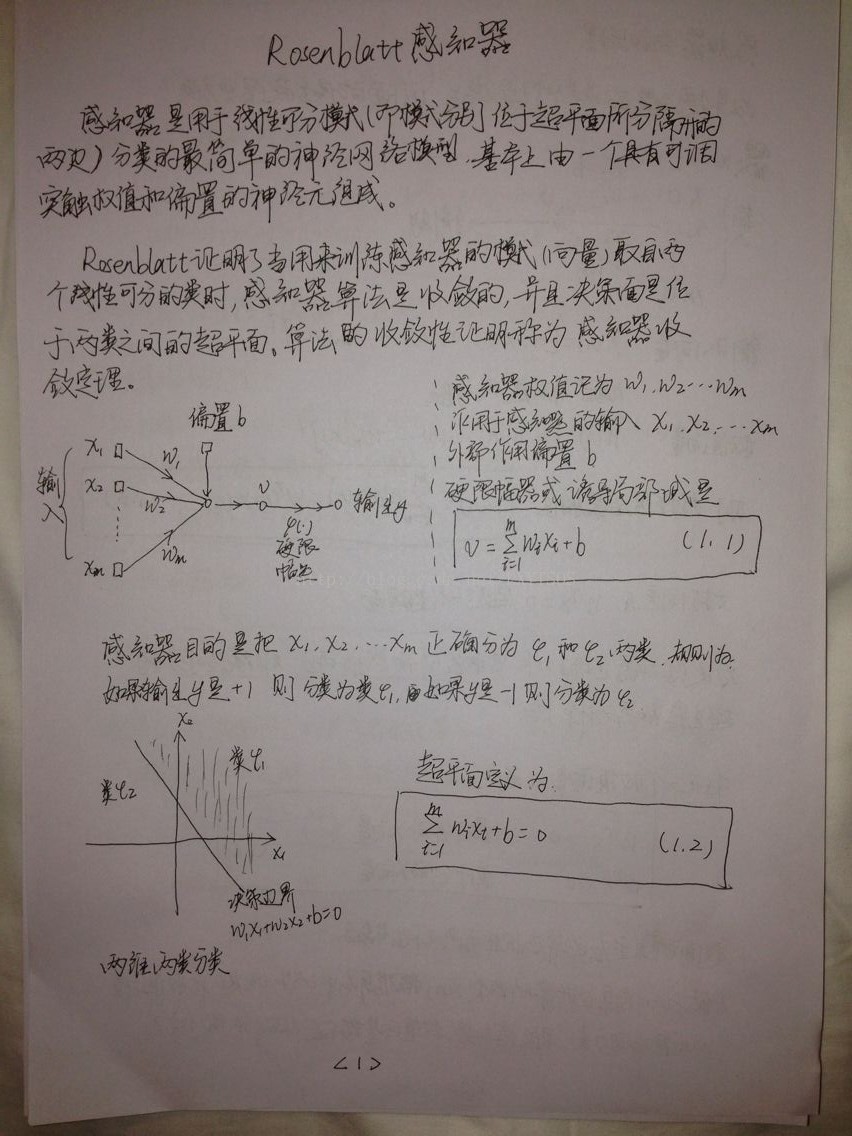 Rosenblatt 感知器
感知器是用于线性可分模式(即模式分别位于超平面所分隔开的
两边)分类的最简单的神经网络模型.基本上由一个具有可调
突触权值和偏置的神经元组成。
Rosenblatt证明了当用来训练感知器的模式(向量)取自两
个线性可分的类时,感知器算法是收敛的,并且决策面是位
于两类之间的超平面。算法的收敛性证明称为感知器收
敛定理。
偏置b
x1
w1
输入
x2
w2
v
输出y
φ(·)
硬限
幅器
xm
wm
感知器权值记为 w1.w2…wm
作用于感知器的输入 x1.x2.…xm
外部作用偏置 b
硬限幅器或诱导局部域是
v=∑_{i=1}^{m} wixi+b (1.1)
感知器目的是把 x1.x2.…xm 正确分为 φ1 和 φ2 两类.规则为:
如果输出y是+1 则分类为类φ1,如果y是-1则分类为φ2
x2
类φ1
类φ2
x1
决策边界
w1x1+w2x2+b=0
两维两类分类
超平面定义为.
∑_{i=1}^{m} wixi+b=0 (1.2)
<1>